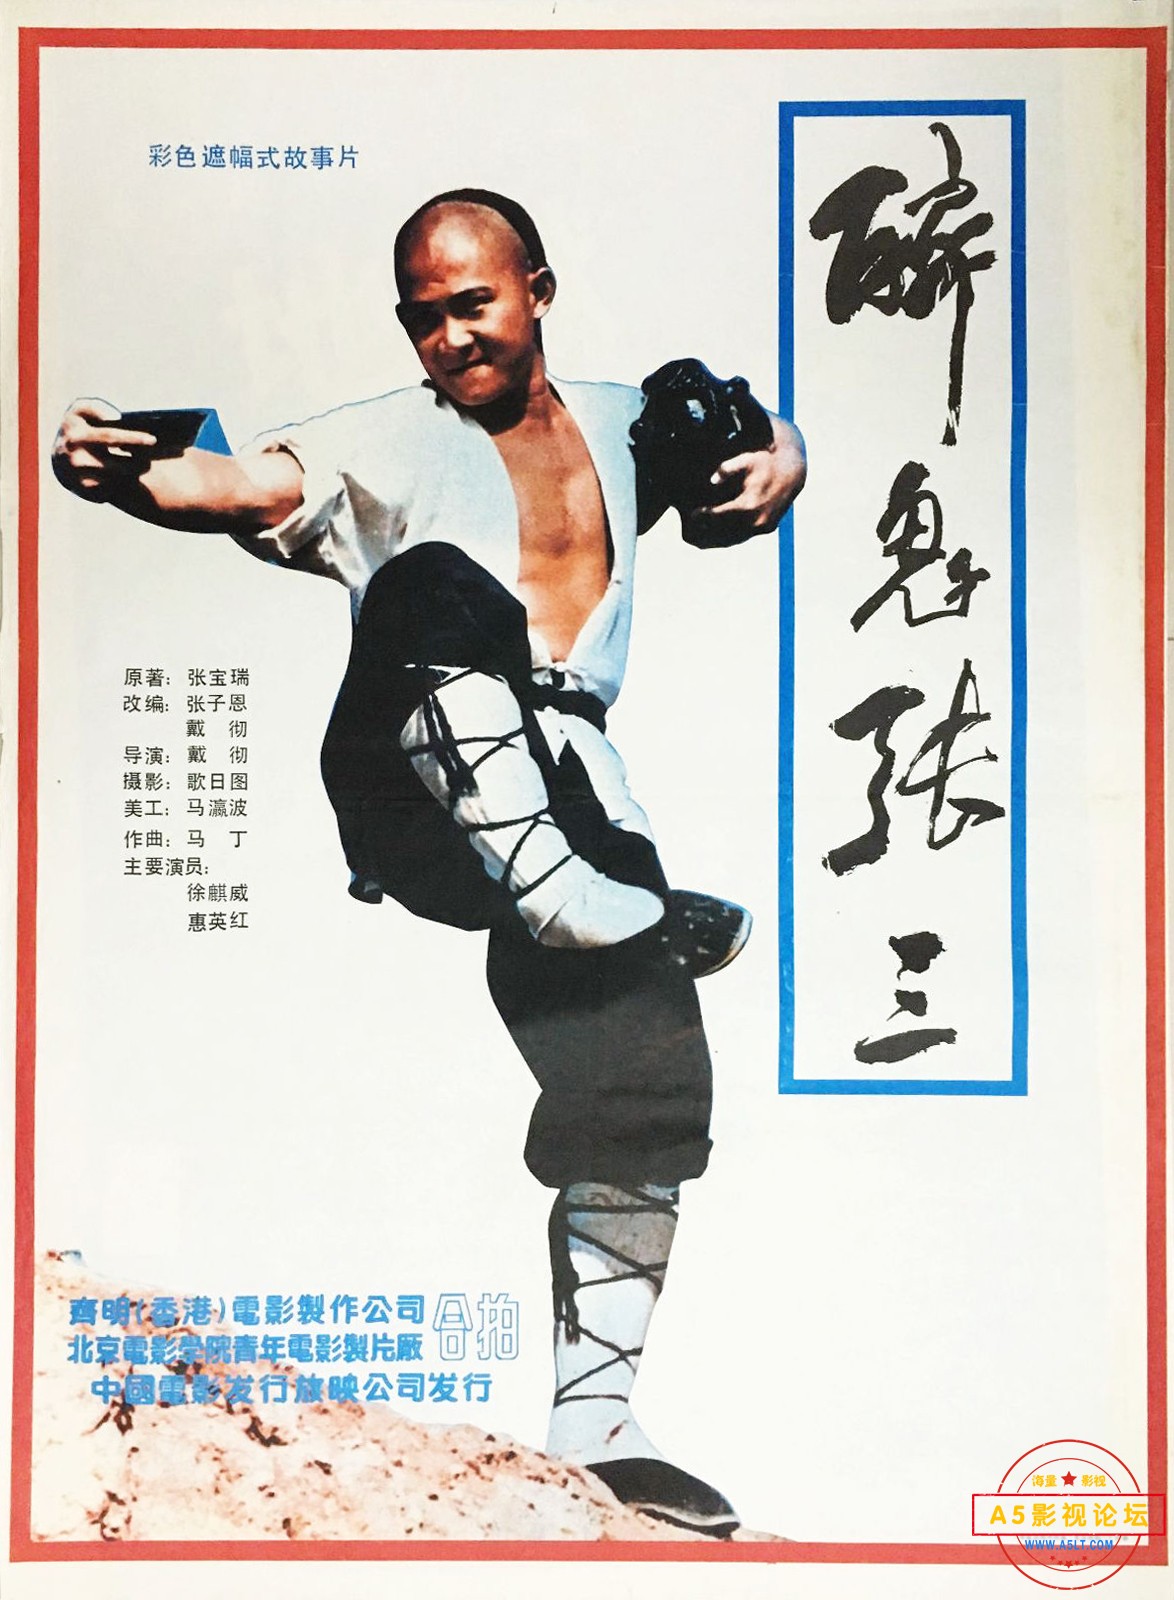 彩色遮幅式故事片
醉鬼张三
原著：张宝瑞
改编：张子恩
戴 彻
导演：戴 彻
摄影：歌日图
美工：马瀛波
作曲：马 丁
主要演员：
徐麒威
惠英红
齊明(香港)電影製作公司
北京電影學院青年電影製片廠
合拍
中國電影发行放映公司发行
海量 影视
A5影视论坛
WWW.A5LT.COM